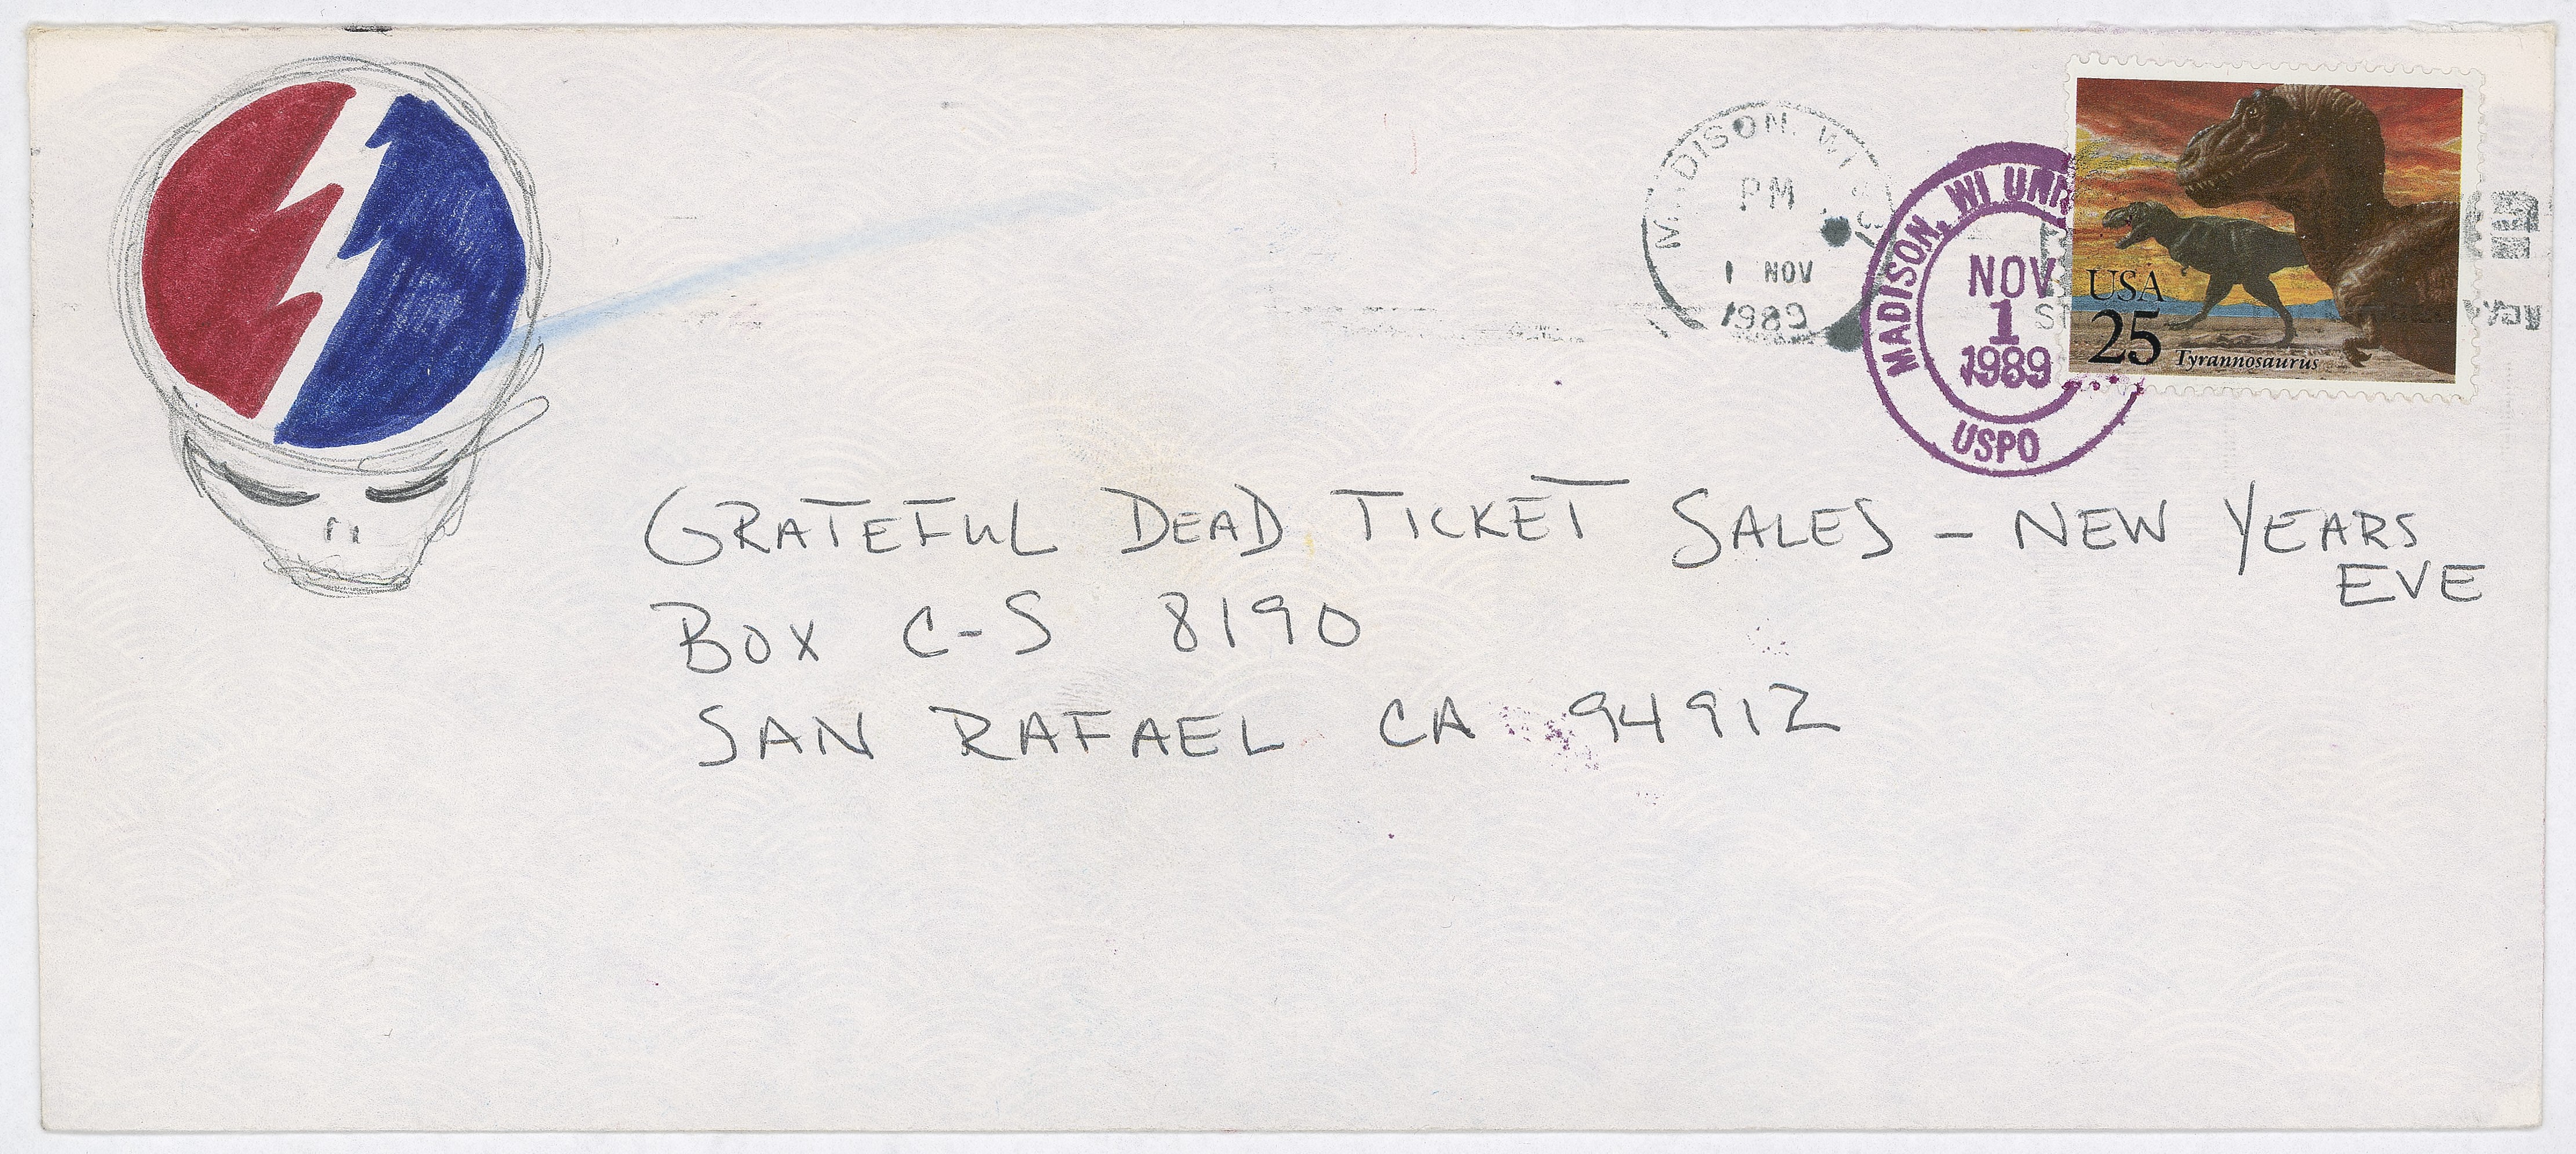 MADISON, WI
PM
1 NOV
1989
MADISON, WI UNI
NOV
1
1989
USPO
USA
25
Tyrannosaurus
GRATEFUL DEAD TICKET SALES – NEW YEARS
EVE
BOX C-S 8190
SAN RAFAEL CA 94912